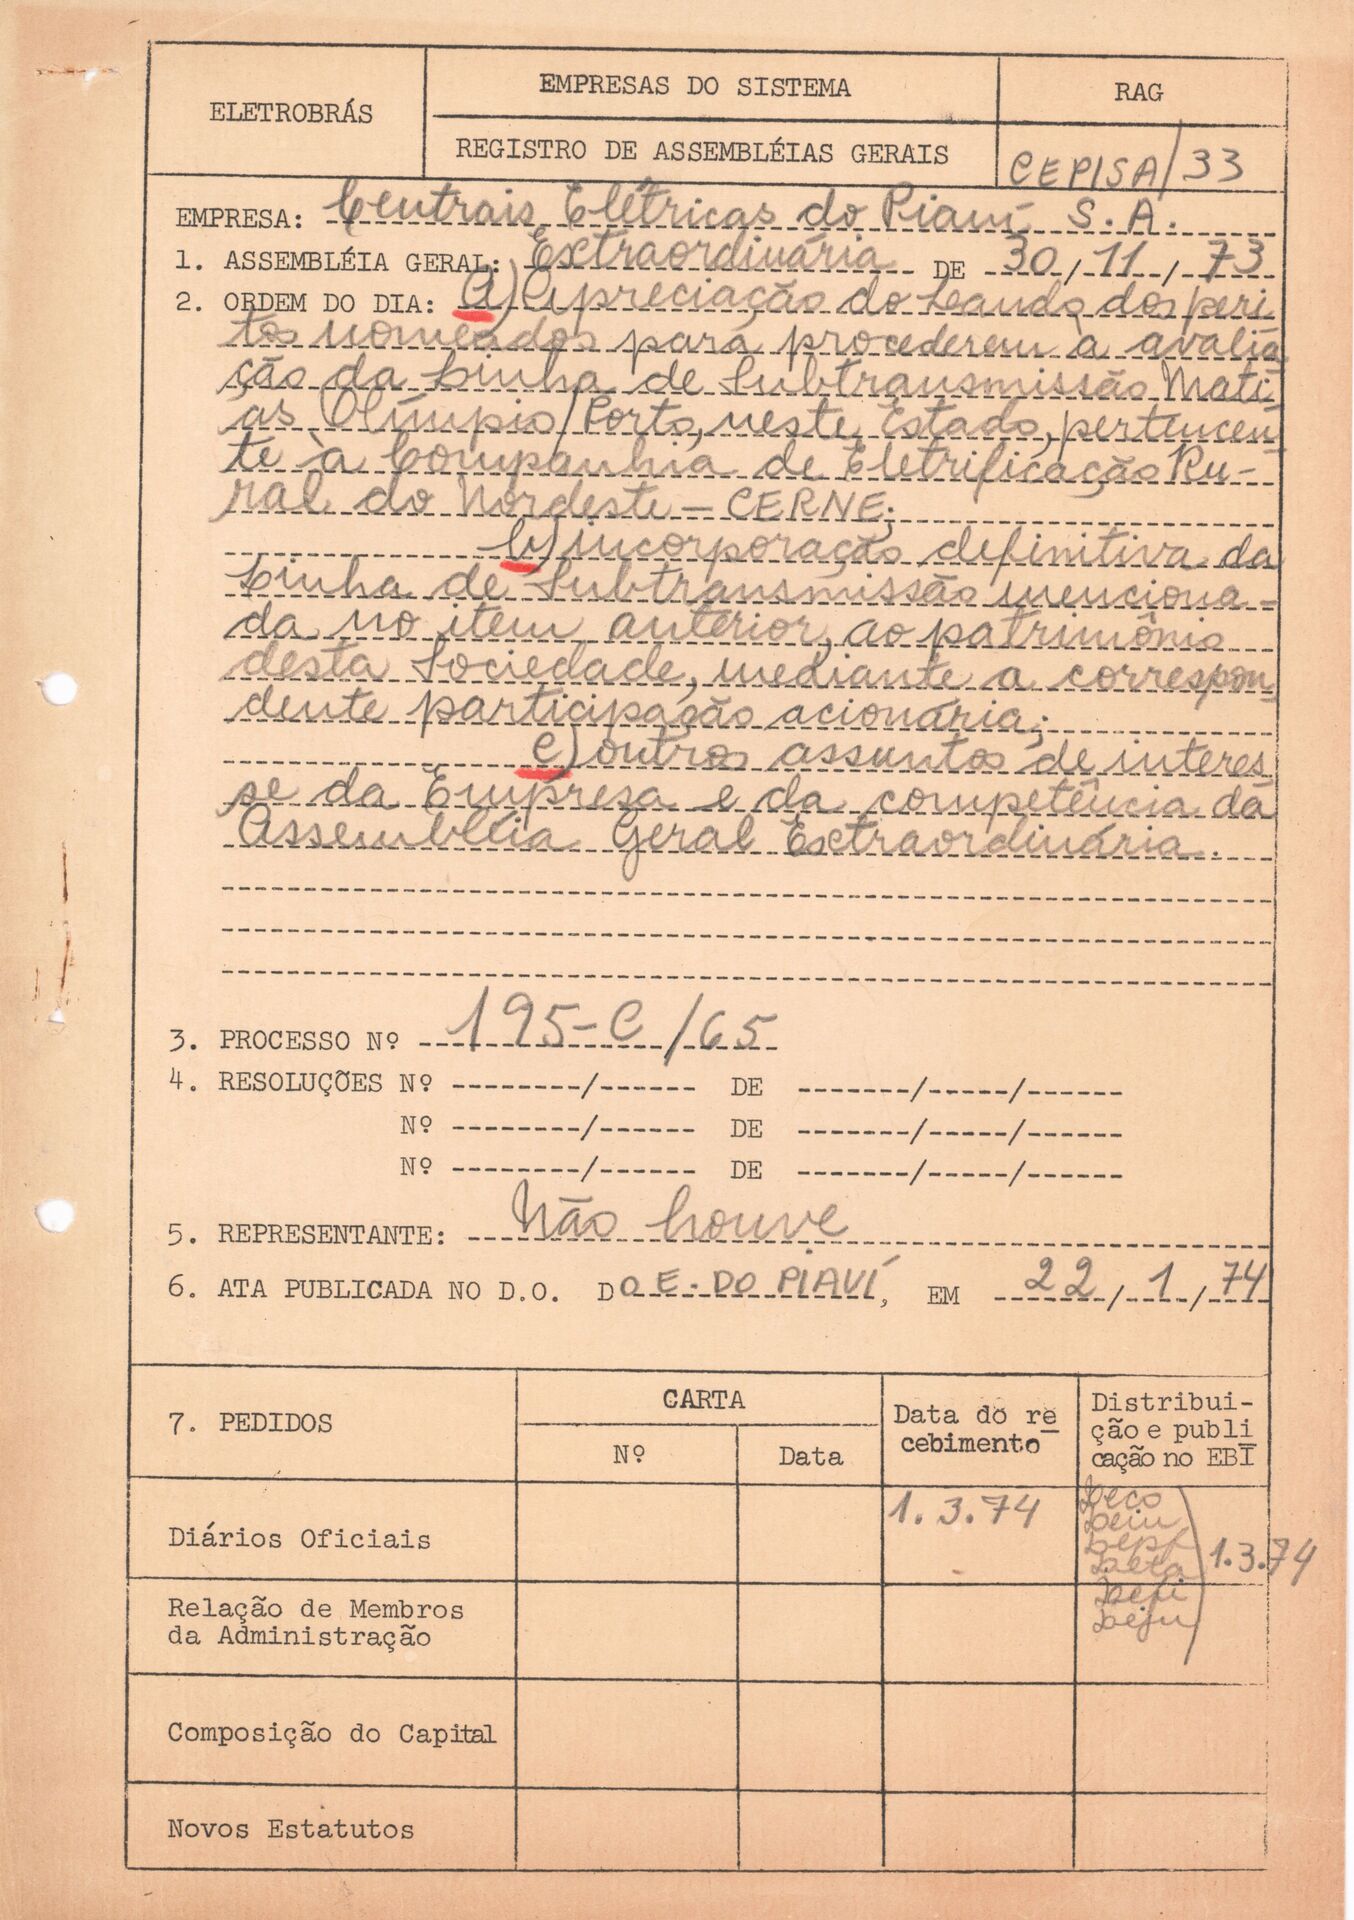 ELETROBRÁS
EMPRESAS DO SISTEMA
RAG
REGISTRO DE ASSEMBLÉIAS GERAIS
CEPISA/33
EMPRESA: Centrais Elétricas do Piauí S.A.
1. ASSEMBLÉIA GERAL: Extraordinária DE 30/11/73
2. ORDEM DO DIA: a) Apreciação do Laudo dos peri
tos nomeados para procederem à avalia
ção da Linha de Subtransmissão Mati
as Olímpio/Porto, neste Estado, pertencen
te à Companhia de Eletrificação Ru-
ral do Nordeste - CERNE;
b) incorporação definitiva da
Linha de Subtransmissão menciona-
da no item anterior, ao patrimônio
desta Sociedade, mediante a correspon
dente participação acionária;
c) outros assuntos de interes
se da Empresa e da competência da
Assembléia Geral Extraordinária.
3. PROCESSO Nº 195-C/65
4. RESOLUÇÕES Nº --------/------ DE -------/-----/------
Nº --------/------ DE -------/-----/------
Nº --------/------ DE -------/-----/------
5. REPRESENTANTE: Não houve
6. ATA PUBLICADA NO D.O. DO E. DO PIAUÍ, EM 22/1/74
7. PEDIDOS
CARTA
Nº
Data
Data do re
cebimento
Distribui-
ção e publi
cação no EBI
Diários Oficiais
1.3.74
Deco
Dein
Depf
Deta
Defi
Deju
1.3.74
Relação de Membros
da Administração
Composição do Capital
Novos Estatutos